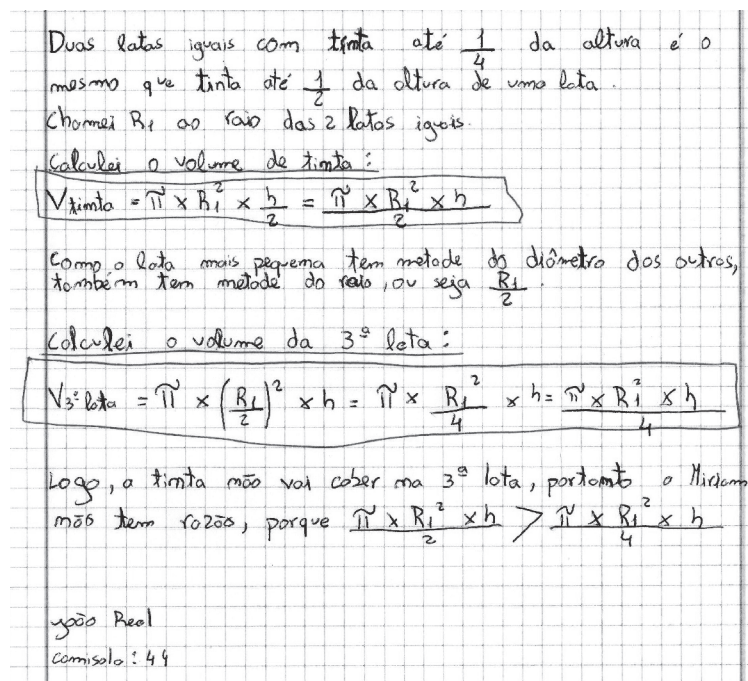 Duas latas iguais com tinta até 1/4 da altura é o
mesmo que tinta até 1/2 da altura de uma lata.
Chamei R₁ ao raio das 2 latas iguais.
Calculei o volume de tinta:
V tinta = π × R₁² × h/2 = (π × R₁² × h)/2
Como a lata mais pequena tem metade do diâmetro das outras,
também tem metade do raio, ou seja R₁/2.
Calculei o volume da 3ª lata:
V 3ª lata = π × (R₁/2)² × h = π × R₁²/4 × h = (π × R₁² × h)/4
Logo, a tinta não vai caber na 3ª lata, portanto a Miriam
não tem razão, porque (π × R₁² × h)/2 > (π × R₁² × h)/4
João Real
camisola: 44